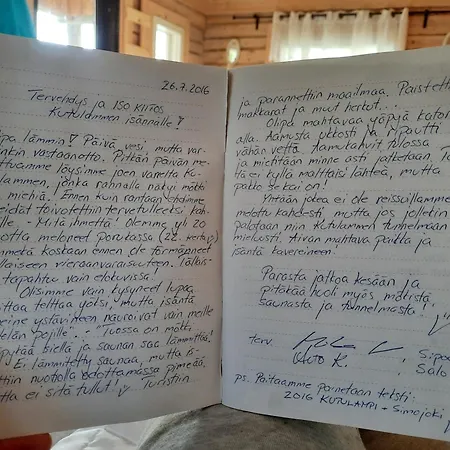 26.7.2016
Tervehdys ja ISO KIITOS
Kutulammen isännälle!
lämmin! Päivä, vesi, mutta var-
vastaanotto. Pitkän päivän me-
löysimme joen varelta Ku-
lammen, jonka rannalla näkyi mökki
miehiä. Ennen kuin rantaan ehdimme
meidät toivotettiin tervetulleeksi kah-
- Mitä ihmettä! Olemme yli 20
meloneet porukassa (22. kerta)
koskaan ennen ole törmänneet
vieraanvaraisuuteen. Tällais-
tapahtuu vain elokuvissa!
Olisimme vain kysyneet lupaa
telttaa yöksi, mutta isäntä
ystävineen nauroivat vain meille
pojille". - "Tuossa on mökki,
siellä ja saunan saa lämmittää!"
Ei lämmitetty saunaa, mutta is-
nuotiolla odottamassa pimeää,
ei sitä tullut! Turistiin
ja parannettiin maailmaa. Paistettiin
makkarat ja muut herkut...
Olipa mahtavaa yöpyä katon
alla. Aamusta ukkosti ja ripautti
vähän vettä. Aamukahvit tulossa
ja mietitään minne asti jatketaan. Tääl-
tä ei kyllä malttaisi lähteä, mutta
pakko se kai on!
Yhtään jokea ei ole reissuillamme
melottu kahdesti, mutta jos jollekin
palataan niin Kutulammen tunnelmaan
mieluusti. Aivan mahtava paikka ja
isäntä kavereineen.
Parasta jatkoa kesään ja
pitäkää huoli myös mökistä,
saunasta ja tunnelmasta!
terv.
, Sipoo
, Salo
ps. Paitaamme painetaan teksti:
2016 KUTULAMPI - Simojoki